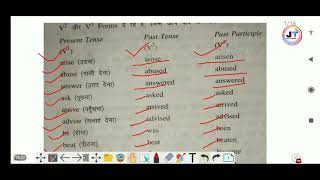 V² और V³ Forms दे रहे हैं
Present Tense Past Tense Past Participle
(V¹) (V²) (V³)
arise (उठना) arose arisen
abuse (गाली देना) abused abused
answer (उत्तर देना) answered answered
ask (पूछना) asked asked
arrive (पहुँचना) arrived arrived
advise (सलाह देना) advised advised
be (होना) was been
beat (पीटना) beat beaten
1/16
JT